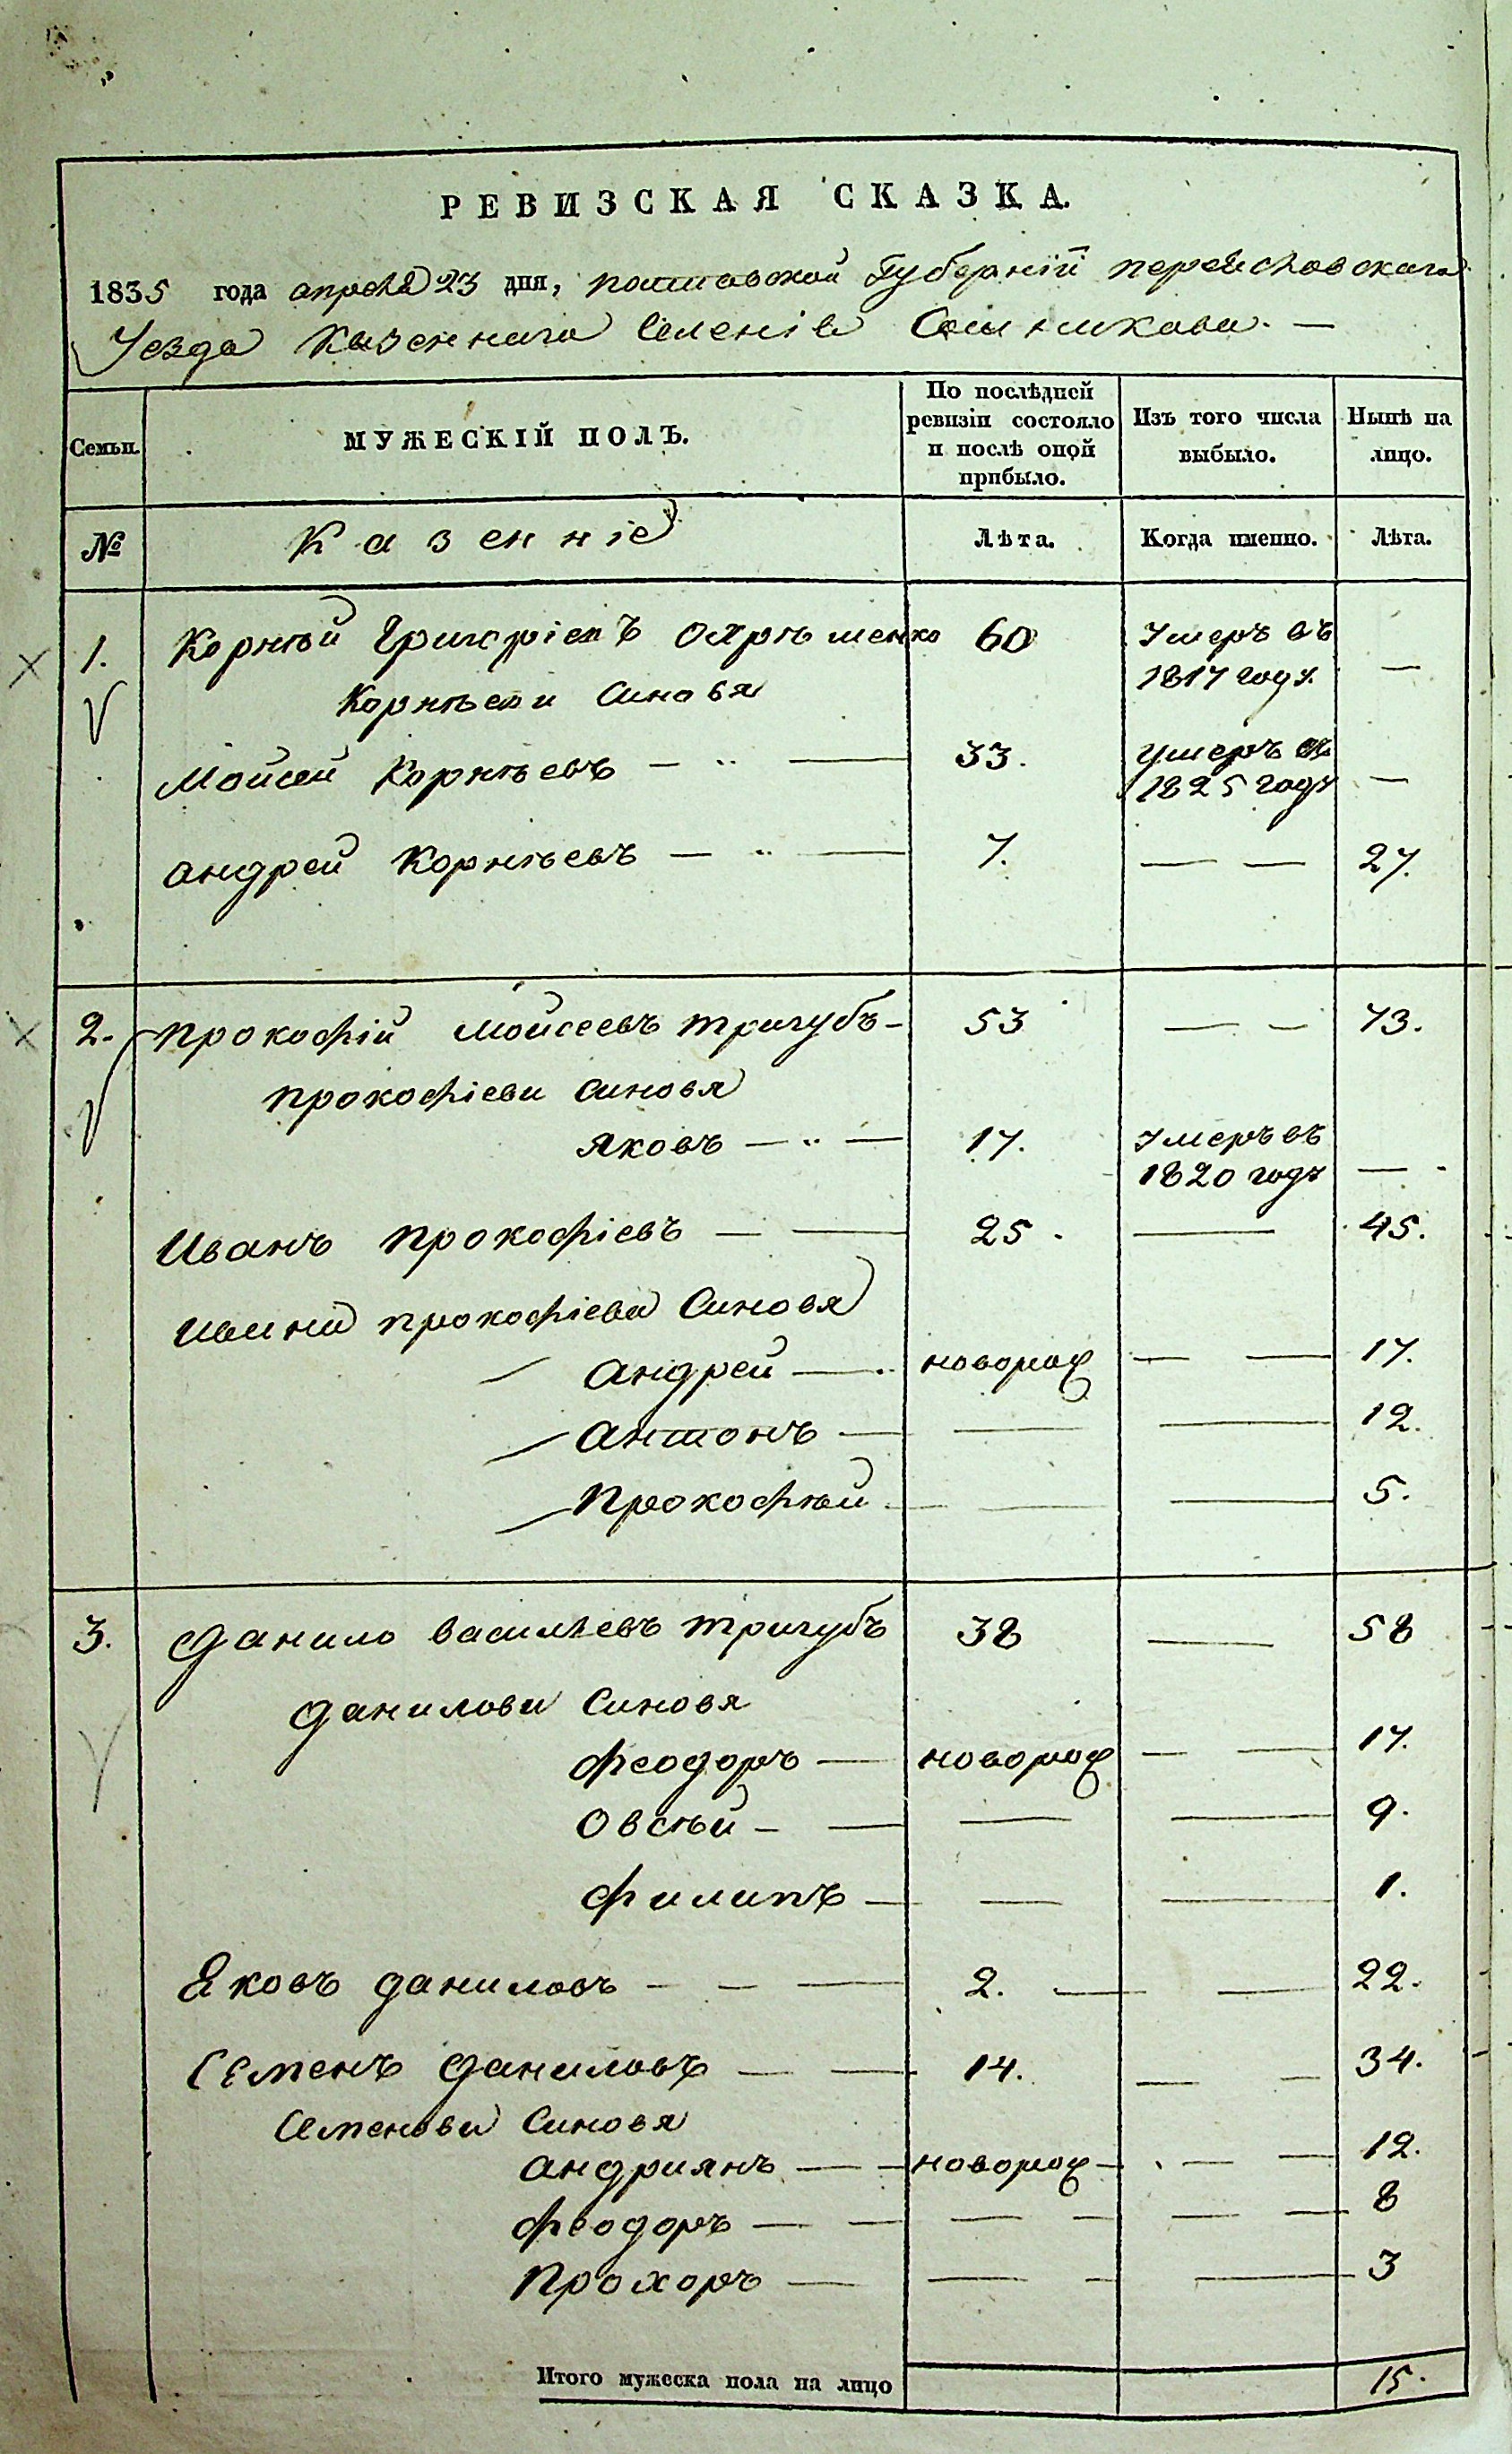 РЕВИЗСКАЯ СКАЗКА.
1835 года апреля 23 дня, полтавской Губерніи переяславскаго
Уезда Казеннаго Селенія Сошникова. —
Семьи. МУЖЕСКІЙ ПОЛЪ. По послѣдней ревизіи состояло и послѣ оной прибыло. Изъ того числа выбыло. Нынѣ на лицо.
№ Казенніе Лѣта. Когда именно. Лѣта.
1. Корнѣй Григоріевъ Охрѣменко 60 Умеръ въ 1817 году. —
Корнѣеви Синовя
Мойсей Корнѣевъ — ·· — 33. умеръ въ 1825 году —
Андрей Корнѣевъ — ·· — 7. — — 27.
2. Прокофій Мойсеевъ Тригубъ — 53 — — 73.
Прокофіеви Синовя
Яковъ — ·· — 17. Умеръ въ 1820 году —
Иванъ Прокофіевъ — — 25. — 45.
Ивана Прокофіева Синовя
Андрей — новорож — — 17.
Антонъ — — — 12.
Прокофѣй — — — 5.
3. Данило Василіевъ Тригубъ 38 — 58
Данилови Синовя
Феодоръ — новорож — — 17.
Овсѣй — — — — 9.
Филипъ — — — 1.
Яковъ Даниловъ — — — 2. — — 22.
Семенъ Даниловъ — — 14. — — 34.
Семенови Синовя
Андриянъ — — новорож — — — 12.
Феодоръ — — — — — — 8
Прохоръ — — — — 3
Итого мужеска пола на лицо 15.